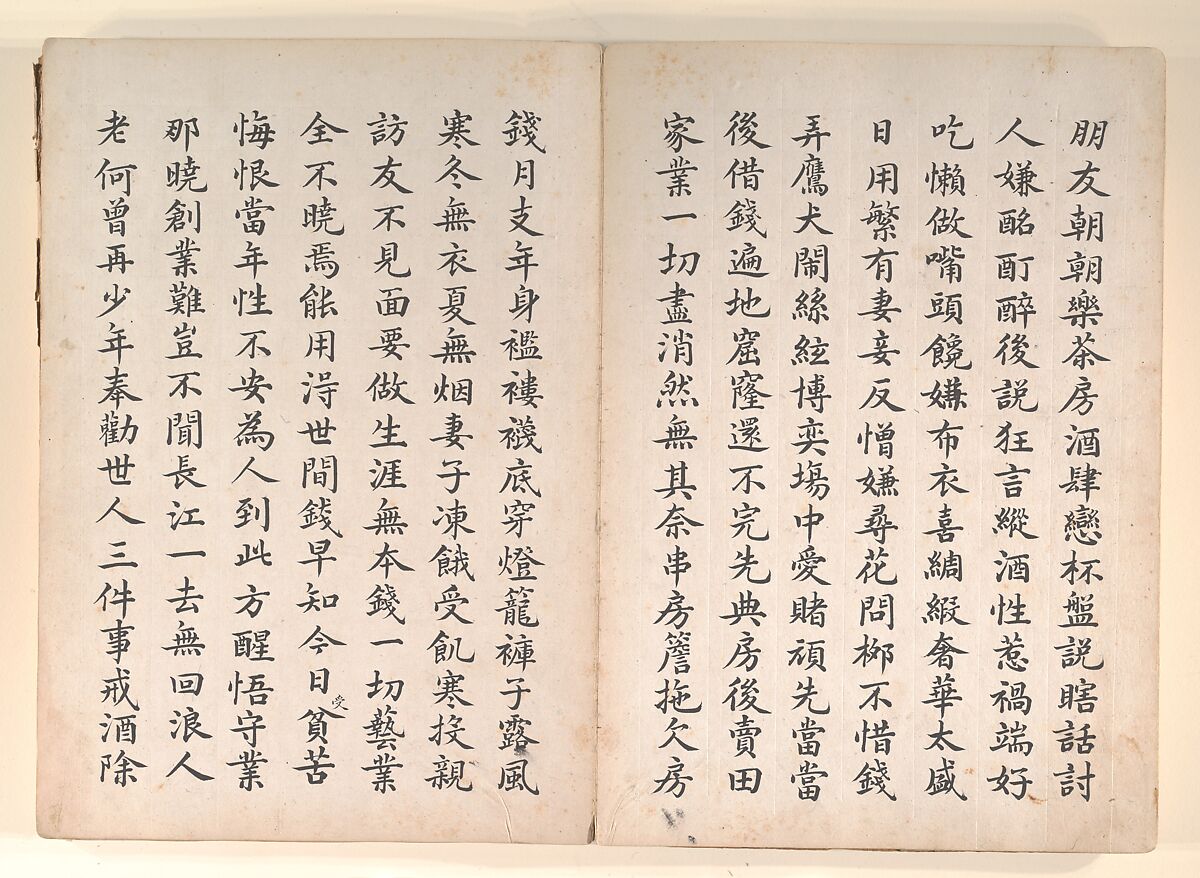 朋友朝朝樂茶房酒肆戀杯盤説瞎話討
人嫌酩酊醉後説狂言縱酒性惹禍端好
吃懶做嘴頭饞嫌布衣喜綢緞奢華太盛
日用繁有妻妾反憎嫌尋花問柳不惜錢
弄鷹犬鬧絲絃博奕塲中愛賭頑先當當
後借錢遍地窟窿還不完先典房後賣田
家業一切盡消然無其奈串房簷拖欠房
錢月支年身襤褸襪底穿燈籠褲子露風
寒冬無衣夏無烟妻子凍餓受飢寒投親
訪友不見面要做生涯無本錢一切藝業
全不曉焉能用淂世間錢早知今日受貧苦
悔恨當年性不安為人到此方醒悟守業
那曉創業難豈不聞長江一去無回浪人
老何曾再少年奉勸世人三件事戒酒除